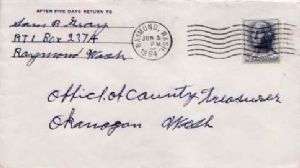 AFTER FIVE DAYS RETURN TO
Sam B Gray
RT1 Box 237A
Raymond Wash
RAYMOND, WASH.
JUN 5
PM
64
Office of County Treasurer
Okanogan Wash